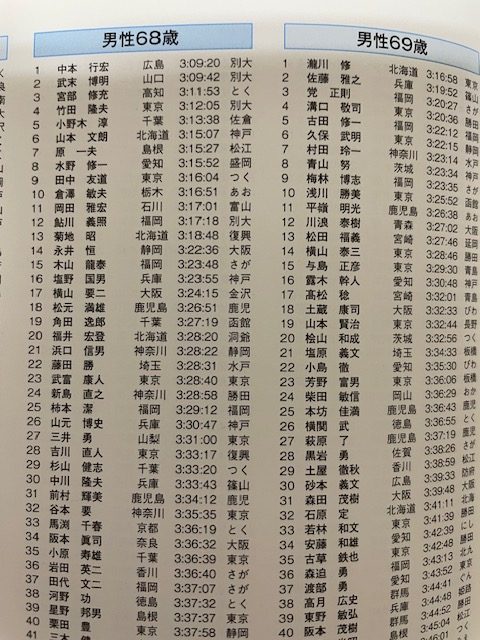 男性68歳
1 中本 行宏 広島 3:09:20 別大
2 武末 博明 山口 3:09:42 別大
3 宮部 修充 高知 3:11:53 とく
4 竹田 隆夫 東京 3:12:05 別大
5 小野木 淳 千葉 3:13:38 佐倉
6 山本 文朗 北海道 3:15:07 神戸
7 原 一夫 島根 3:15:27 松江
8 水野 修一 愛知 3:15:52 盛岡
9 田中 友道 東京 3:16:04 つく
10 倉澤 敏夫 栃木 3:16:51 あお
11 岡田 雅宏 石川 3:17:01 富山
12 鮎川 義照 福岡 3:17:18 別大
13 菊地 昭 北海道 3:18:48 復興
14 永井 恒 静岡 3:22:36 大阪
15 木山 龍泰 福岡 3:23:48 さが
16 塩野 国男 兵庫 3:23:55 神戸
17 横山 要二 大阪 3:24:15 金沢
18 松元 満雄 鹿児島 3:26:51 鹿児
19 角田 逸郎 千葉 3:27:19 函館
20 福井 宏登 北海道 3:28:20 洞爺
21 浜口 信男 神奈川 3:28:22 静岡
22 藤田 勝 埼玉 3:28:31 水戸
23 武富 康人 東京 3:28:40 東京
24 新島 直之 神奈川 3:28:58 勝田
25 柿本 潔 福岡 3:29:12 福岡
26 山元 博史 兵庫 3:30:47 神戸
27 三井 勇 山梨 3:31:00 東京
28 吉川 直人 東京 3:33:17 復興
29 杉山 健志 千葉 3:33:20 つく
30 中川 隆夫 兵庫 3:33:43 篠山
31 前村 輝美 鹿児島 3:34:12 鹿児
32 谷本 要 神奈川 3:35:35 東京
33 馬渕 千春 京都 3:36:19 とく
34 阪本 眞司 奈良 3:37:32 大阪
35 小原 寿雄 千葉 3:36:39 東京
36 岩田 英二 香川 3:36:40 さが
37 田代 文二 福岡 3:37:12 さが
38 河野 功 徳島 3:37:32 とく
39 星野 邦男 島根 3:37:51 東京
40 栗田 豊 東京 3:37:58 静岡
男性69歳
1 瀧川 修 北海道 3:16:58 東京
2 佐藤 雅之 兵庫 3:19:52 篠山
3 党 正則 福岡 3:20:27 さが
4 溝口 敬司 東京 3:22:12 勝田
5 古田 修一 福岡 3:22:18 福岡
6 久保 武明 東京 3:22:15 静岡
7 村田 玲一 神奈川 3:23:14 東京
8 青山 努 茨城 3:23:34 水戸
9 梅林 博志 福岡 3:23:35 さが
10 浅川 勝美 東京 3:25:52 函館
11 平嶺 明光 鹿児島 3:26:38 鹿児
12 川浪 泰樹 青森 3:27:02 大阪
13 松田 福義 宮崎 3:27:46 延岡
14 横山 泰三 東京 3:28:46 勝田
15 与島 正彦 東京 3:29:30 青島
16 露木 幹人 愛知 3:30:48 神戸
17 髙松 稔 宮崎 3:32:01 青島
18 土蔵 康司 大阪 3:32:33 びわ
19 山本 賢治 東京 3:32:44 長野
20 桧山 和成 茨城 3:32:56 つく
21 塩原 義文 埼玉 3:34:33 板橋
22 小島 徹 愛知 3:35:30 びわ
23 芳野 富男 東京 3:36:06 板橋
24 柴田 敏信 岡山 3:36:29 おか
25 本坊 佳満 鹿児島 3:36:43 鹿児
26 横関 武 徳島 3:36:55 とく
27 萩原 了 鹿児島 3:37:17 鹿児
28 黒岩 勇 佐賀 3:38:26 さが
29 土屋 徹秋 香川 3:38:59 松江
30 砂本 義文 広島 3:39:33 防府
31 森田 茂樹 大阪 3:39:17 大阪
32 石原 定 北海道 3:41:11 北海
33 若林 和文 東京 3:41:39 勝田
34 安藤 和雄 愛知 3:42:39 にし
35 古草 鉄也 東京 3:42:58 勝田
36 森迫 勇 愛知 3:43:14 北九
37 渡部 勇 群馬 3:43:52 東京
38 高月 広史 兵庫 3:44:48 姫路
39 東野 敏弘 群馬 3:44:52 勝田